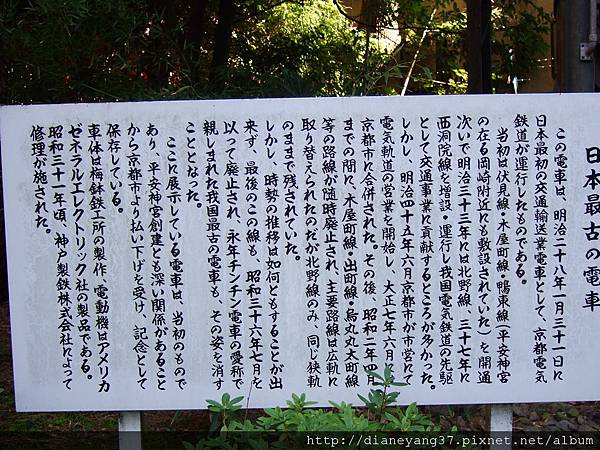 日本最古の電車
この電車は、明治二十八年一月三十一日に
日本最初の交通輸送業電車として、京都電気
鉄道が運行したものである。
当初は伏見線・木屋町線・鴨東線(平安神宮
の在る岡崎附近にも敷設されていた)を開通
次いで明治三十三年には北野線、三十七年に
西洞院線を増設・運行し我国電気鉄道の先駆
として交通事業に貢献するところが多かった。
しかし、明治四十五年六月京都市が市営にて
電気軌道の営業を開始し、大正七年六月
京都市に合併された。その後、昭和二年四月
までの間に、木屋町線・出町線・烏丸丸太町線
等の路線が随時廃止され、主要路線は広軌に
取り替えられたのだが北野線のみ、同じ狭軌
のままで残されていた。
しかし、時勢の推移は如何ともすることが出
来ず、最後のこの線も、昭和三十六年七月を
以って廃止され、永年チンチン電車の愛称で
親しまれた我国最古の電車も、その姿を消す
こととなった。
ここに展示している電車は、当初のもので
あり、平安神宮創建とも深い関係があること
から京都市より払い下げを受け、記念として
保存している。
車体は梅鉢鉄工所の製作、電動機はアメリカ
ゼネラルエレクトリック社の製品である。
昭和三十一年頃、神戸製鉄株式会社によって
修理が施された。
http://dianeyang37.pixnet.net/album